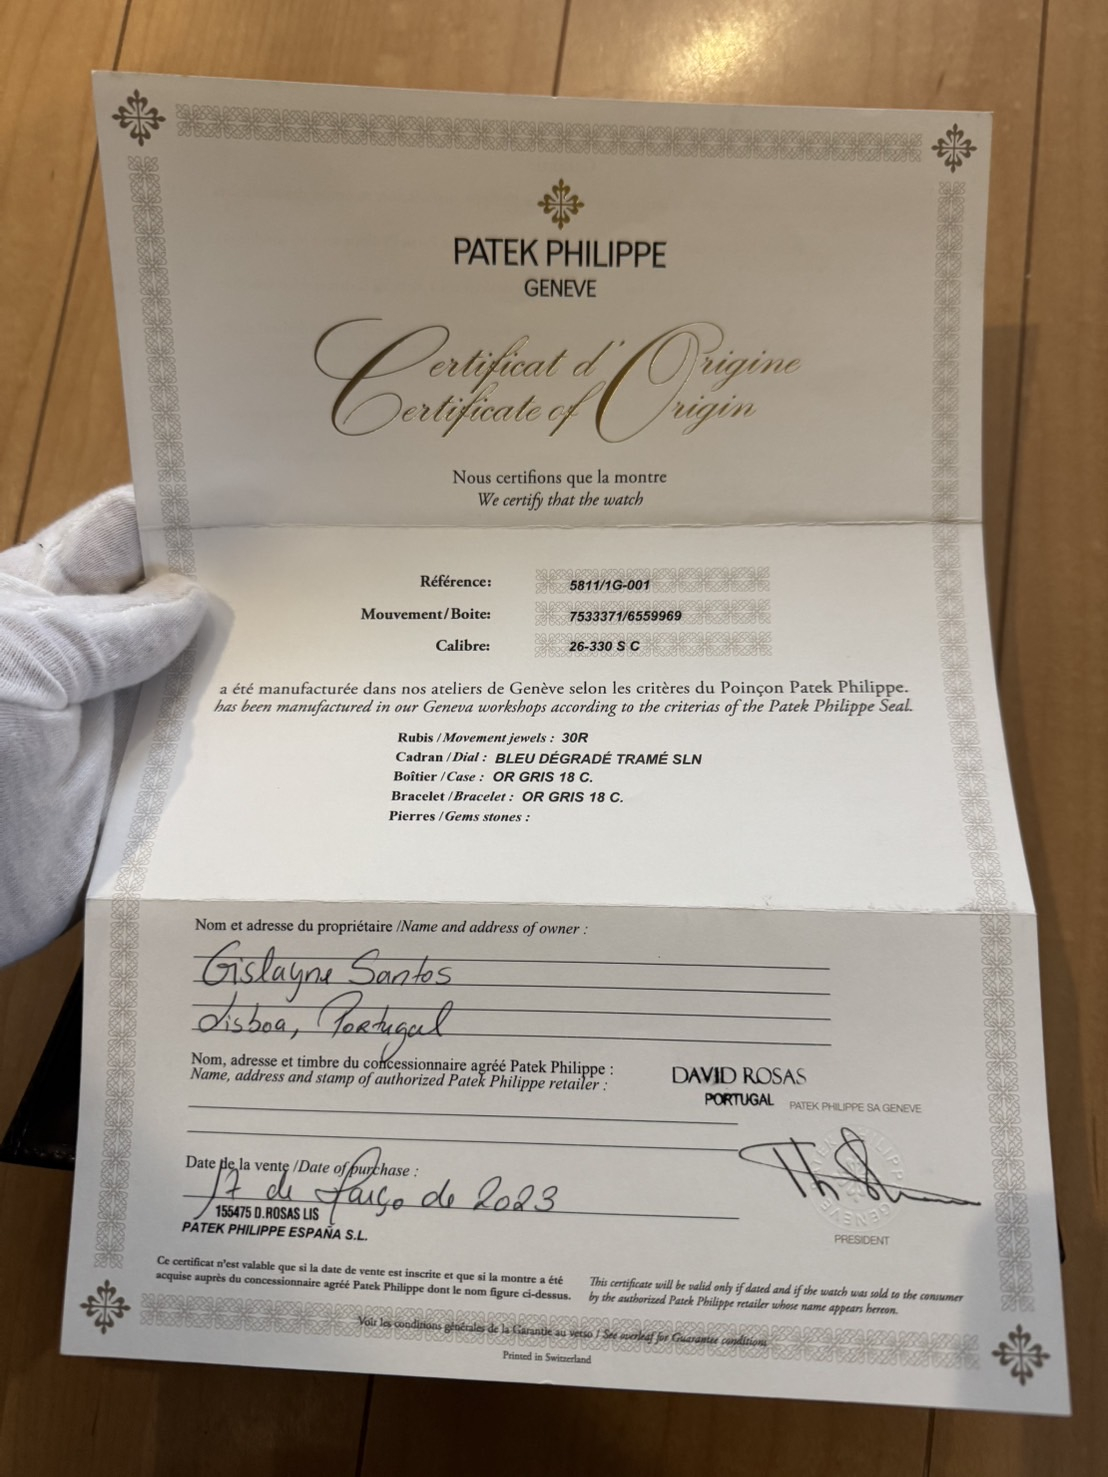 PATEK PHILIPPE
GENEVE
Certificat d'Origine
Certificate of Origin
Nous certifions que la montre
We certify that the watch
Référence: 5811/1G-001
Mouvement/Boite: 7533371/6559969
Calibre: 26-330 S C
a été manufacturée dans nos ateliers de Genève selon les critères du Poinçon Patek Philippe.
has been manufactured in our Geneva workshops according to the criterias of the Patek Philippe Seal.
Rubis / Movement jewels : 30R
Cadran / Dial : BLEU DÉGRADÉ TRAMÉ SLN
Boîtier / Case : OR GRIS 18 C.
Bracelet / Bracelet : OR GRIS 18 C.
Pierres / Gems stones :
Nom et adresse du propriétaire /Name and address of owner :
Gislayne Santos
Lisboa, Portugal
Nom, adresse et timbre du concessionnaire agréé Patek Philippe :
Name, address and stamp of authorized Patek Philippe retailer :
DAVID ROSAS
PORTUGAL
PATEK PHILIPPE SA GENEVE
Date de la vente /Date of purchase :
17 de Março de 2023
155475 D.ROSAS LIS
PATEK PHILIPPE ESPAÑA S.L.
PRESIDENT
Ce certificat n'est valable que si la date de vente est inscrite et que si la montre a été
acquise auprès du concessionnaire agréé Patek Philippe dont le nom figure ci-dessus.
This certificate will be valid only if dated and if the watch was sold to the consumer
by the authorized Patek Philippe retailer whose name appears hereon.
Voir les conditions générales de la Garantie au verso / See overleaf for Guarantee conditions
Printed in Switzerland